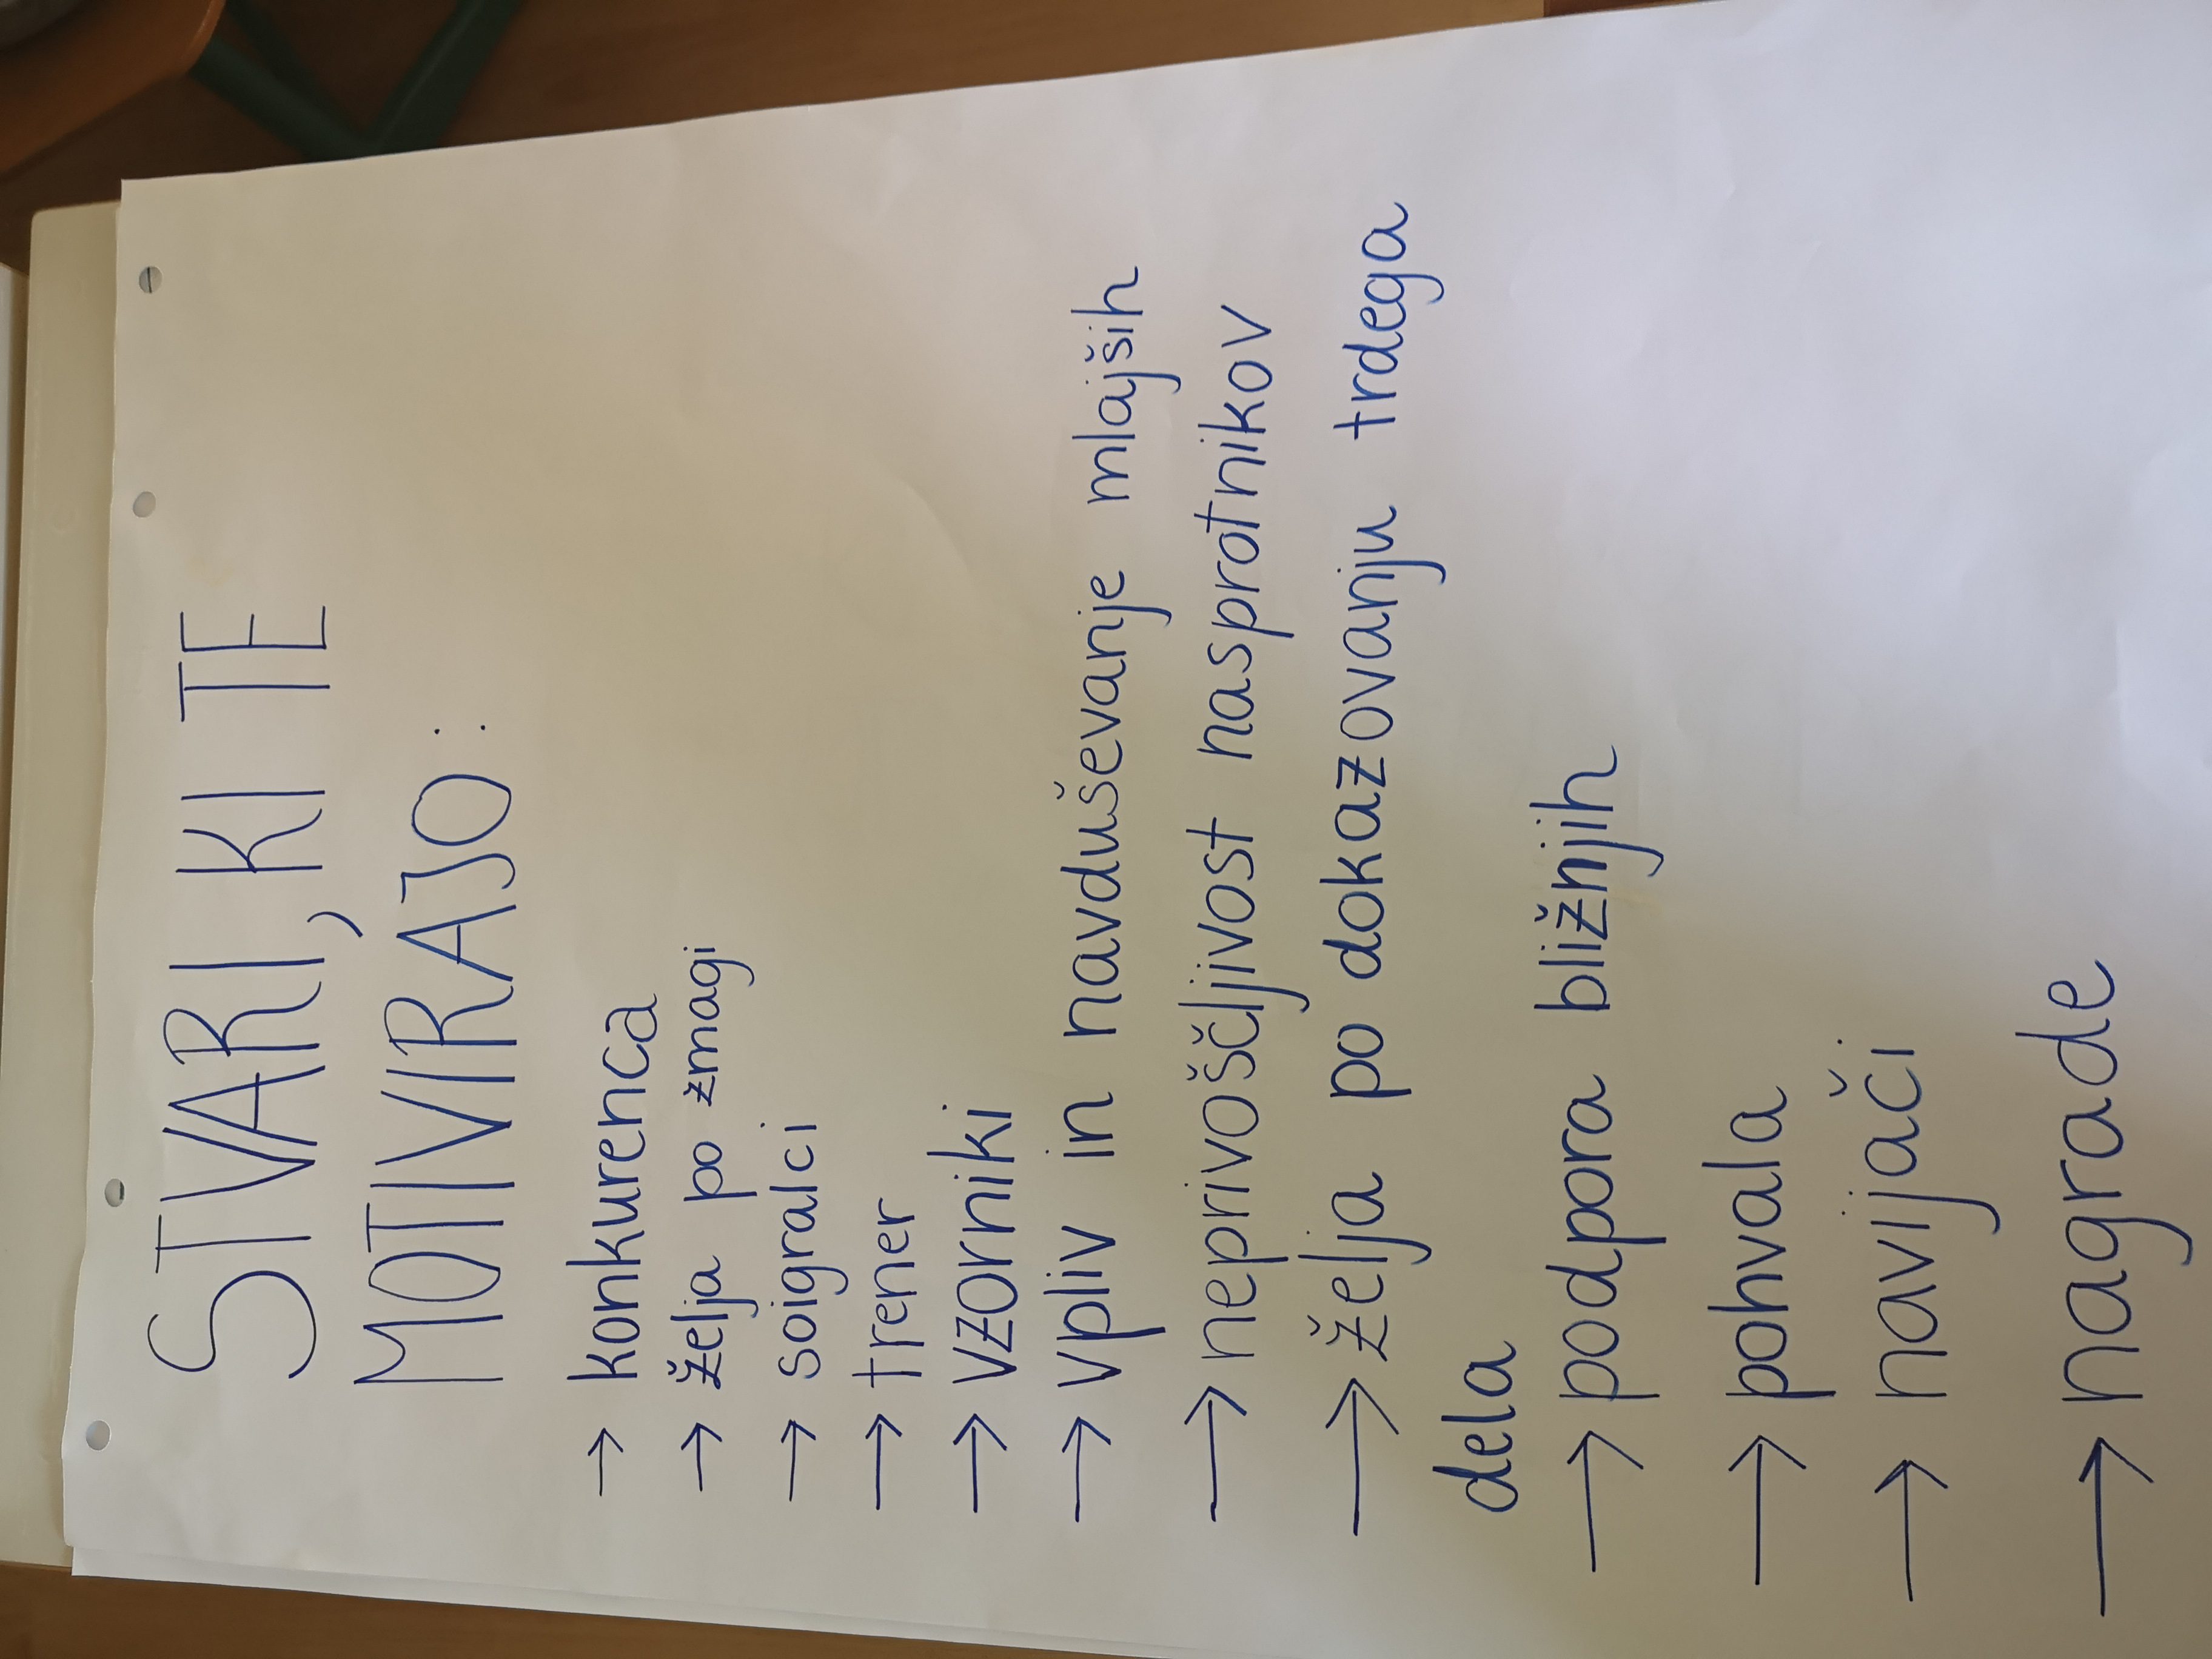 STVARI, KI TE
MOTIVIRAJO:
→ konkurenca
→ želja po zmagi
→ soigralci
→ trener
→ vzorniki
→ vpliv in navduševanje mlajših
→ neprivoščljivost nasprotnikov
→ želja po dokazovanju trdega
dela
→ podpora bližnjih
→ pohvala
→ navijači
→ nagrade